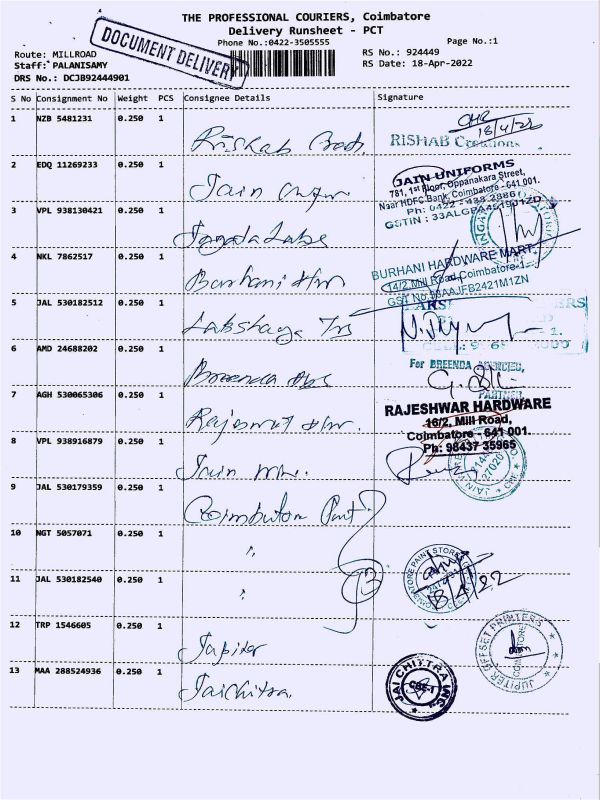 THE PROFESSIONAL COURIERS, Coimbatore
Delivery Runsheet - PCT
Phone No.:0422-3505555
Page No.:1
DOCUMENT DELIVERY
Route: MILLROAD
Staff: PALANISAMY
DRS No.: DCJB92444901
RS No.: 924449
RS Date: 18-Apr-2022
S No Consignment No Weight PCS Consignee Details Signature
1 NZB 5481231 0.250 1 Rishab
18/4/22
RISHAB Creations
2 EDQ 11269233 0.250 1 Jain
JAIN UNIFORMS
781, 1st Floor, Oppanakara Street,
Near HDFC Bank, Coimbatore - 641 001.
Ph: 0422 -
GSTIN : 33
3 VPL 938130421 0.250 1
4 NKL 7862517 0.250 1 Burhani H/w
BURHANI HARDWARE MART
14/2, Mill Road, Coimbatore-1
GST No.
5 JAL 530182512 0.250 1 Lakshaya
6 AMD 24688202 0.250 1 Breenda
For BREENDA AGENCIES,
PARTNER
7 AGH 530065306 0.250 1
RAJESHWAR HARDWARE
16/2, Mill Road,
Coimbatore - 641 001.
Ph: 98437 35965
8 VPL 938916879 0.250 1 Jain
9 JAL 530179359 0.250 1 Coimbatore Paint
10 NGT 5057071 0.250 1 "
COIMBATORE PAINT STORES
11 JAL 530182540 0.250 1 "
18/4/22
12 TRP 1546605 0.250 1 Jupiter
JUPITER OFFSET PRINTERS
COIMBATORE
13 MAA 288524936 0.250 1 Jaichitra
JAI CHITTRA INC.
CBE-1